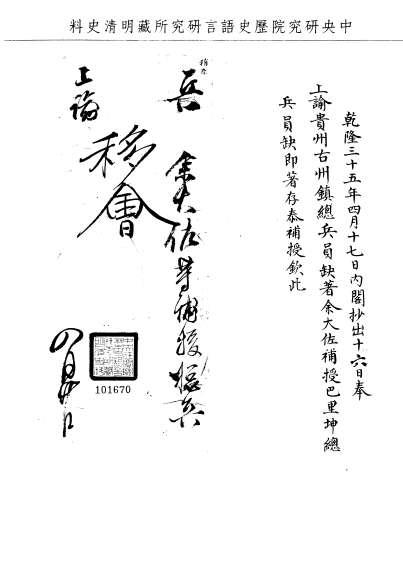 中央研究院歷史語言研究所藏明清史料
乾隆三十五年四月十七日內閣抄出十六日奉
上諭貴州古州鎮總兵員缺著余大佐補授巴里坤總
兵員缺即著存泰補授欽此
兵 余大佐等補授總兵
移會
上諭
四月 日
101670